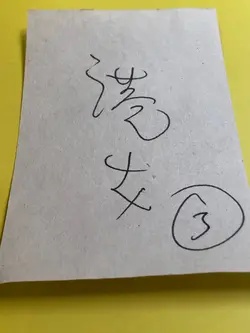 港女
③